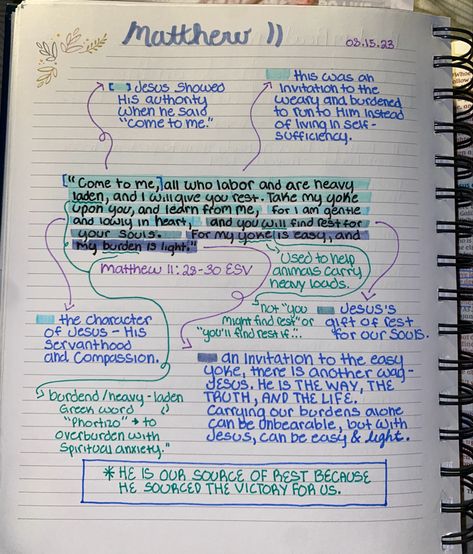 Matthew 11
08.15.23
[ ] Jesus showed
His authority
when he said
"come to me."
this was an
invitation to the
weary and burdened
to run to Him instead
of living in self-
sufficiency.
["Come to me,] all who labor and are heavy
laden, and I will give you rest. Take my yoke
upon you, and learn from me, for I am gentle
and lowly in heart, and you will find rest for
your souls. For my yoke is easy, and
my burden is light."
Matthew 11:28-30 ESV
Used to help
animals carry
heavy loads.
the character
of Jesus - His
servanthood
and compassion.
not "you
might find rest" or
"you'll find rest if...
Jesus's
gift of rest
for our souls.
an invitation to the easy
yoke, there is another way-
JESUS. HE IS THE WAY, THE
TRUTH, AND THE LIFE.
Carrying our burdens alone
can be unbearable, but with
Jesus, can be easy & light.
burdend/heavy-laden
Greek word
"Phortizo" → to
overburden with
spiritual anxiety."
* HE IS OUR SOURCE OF REST BECAUSE
HE SOURCED THE VICTORY FOR US.